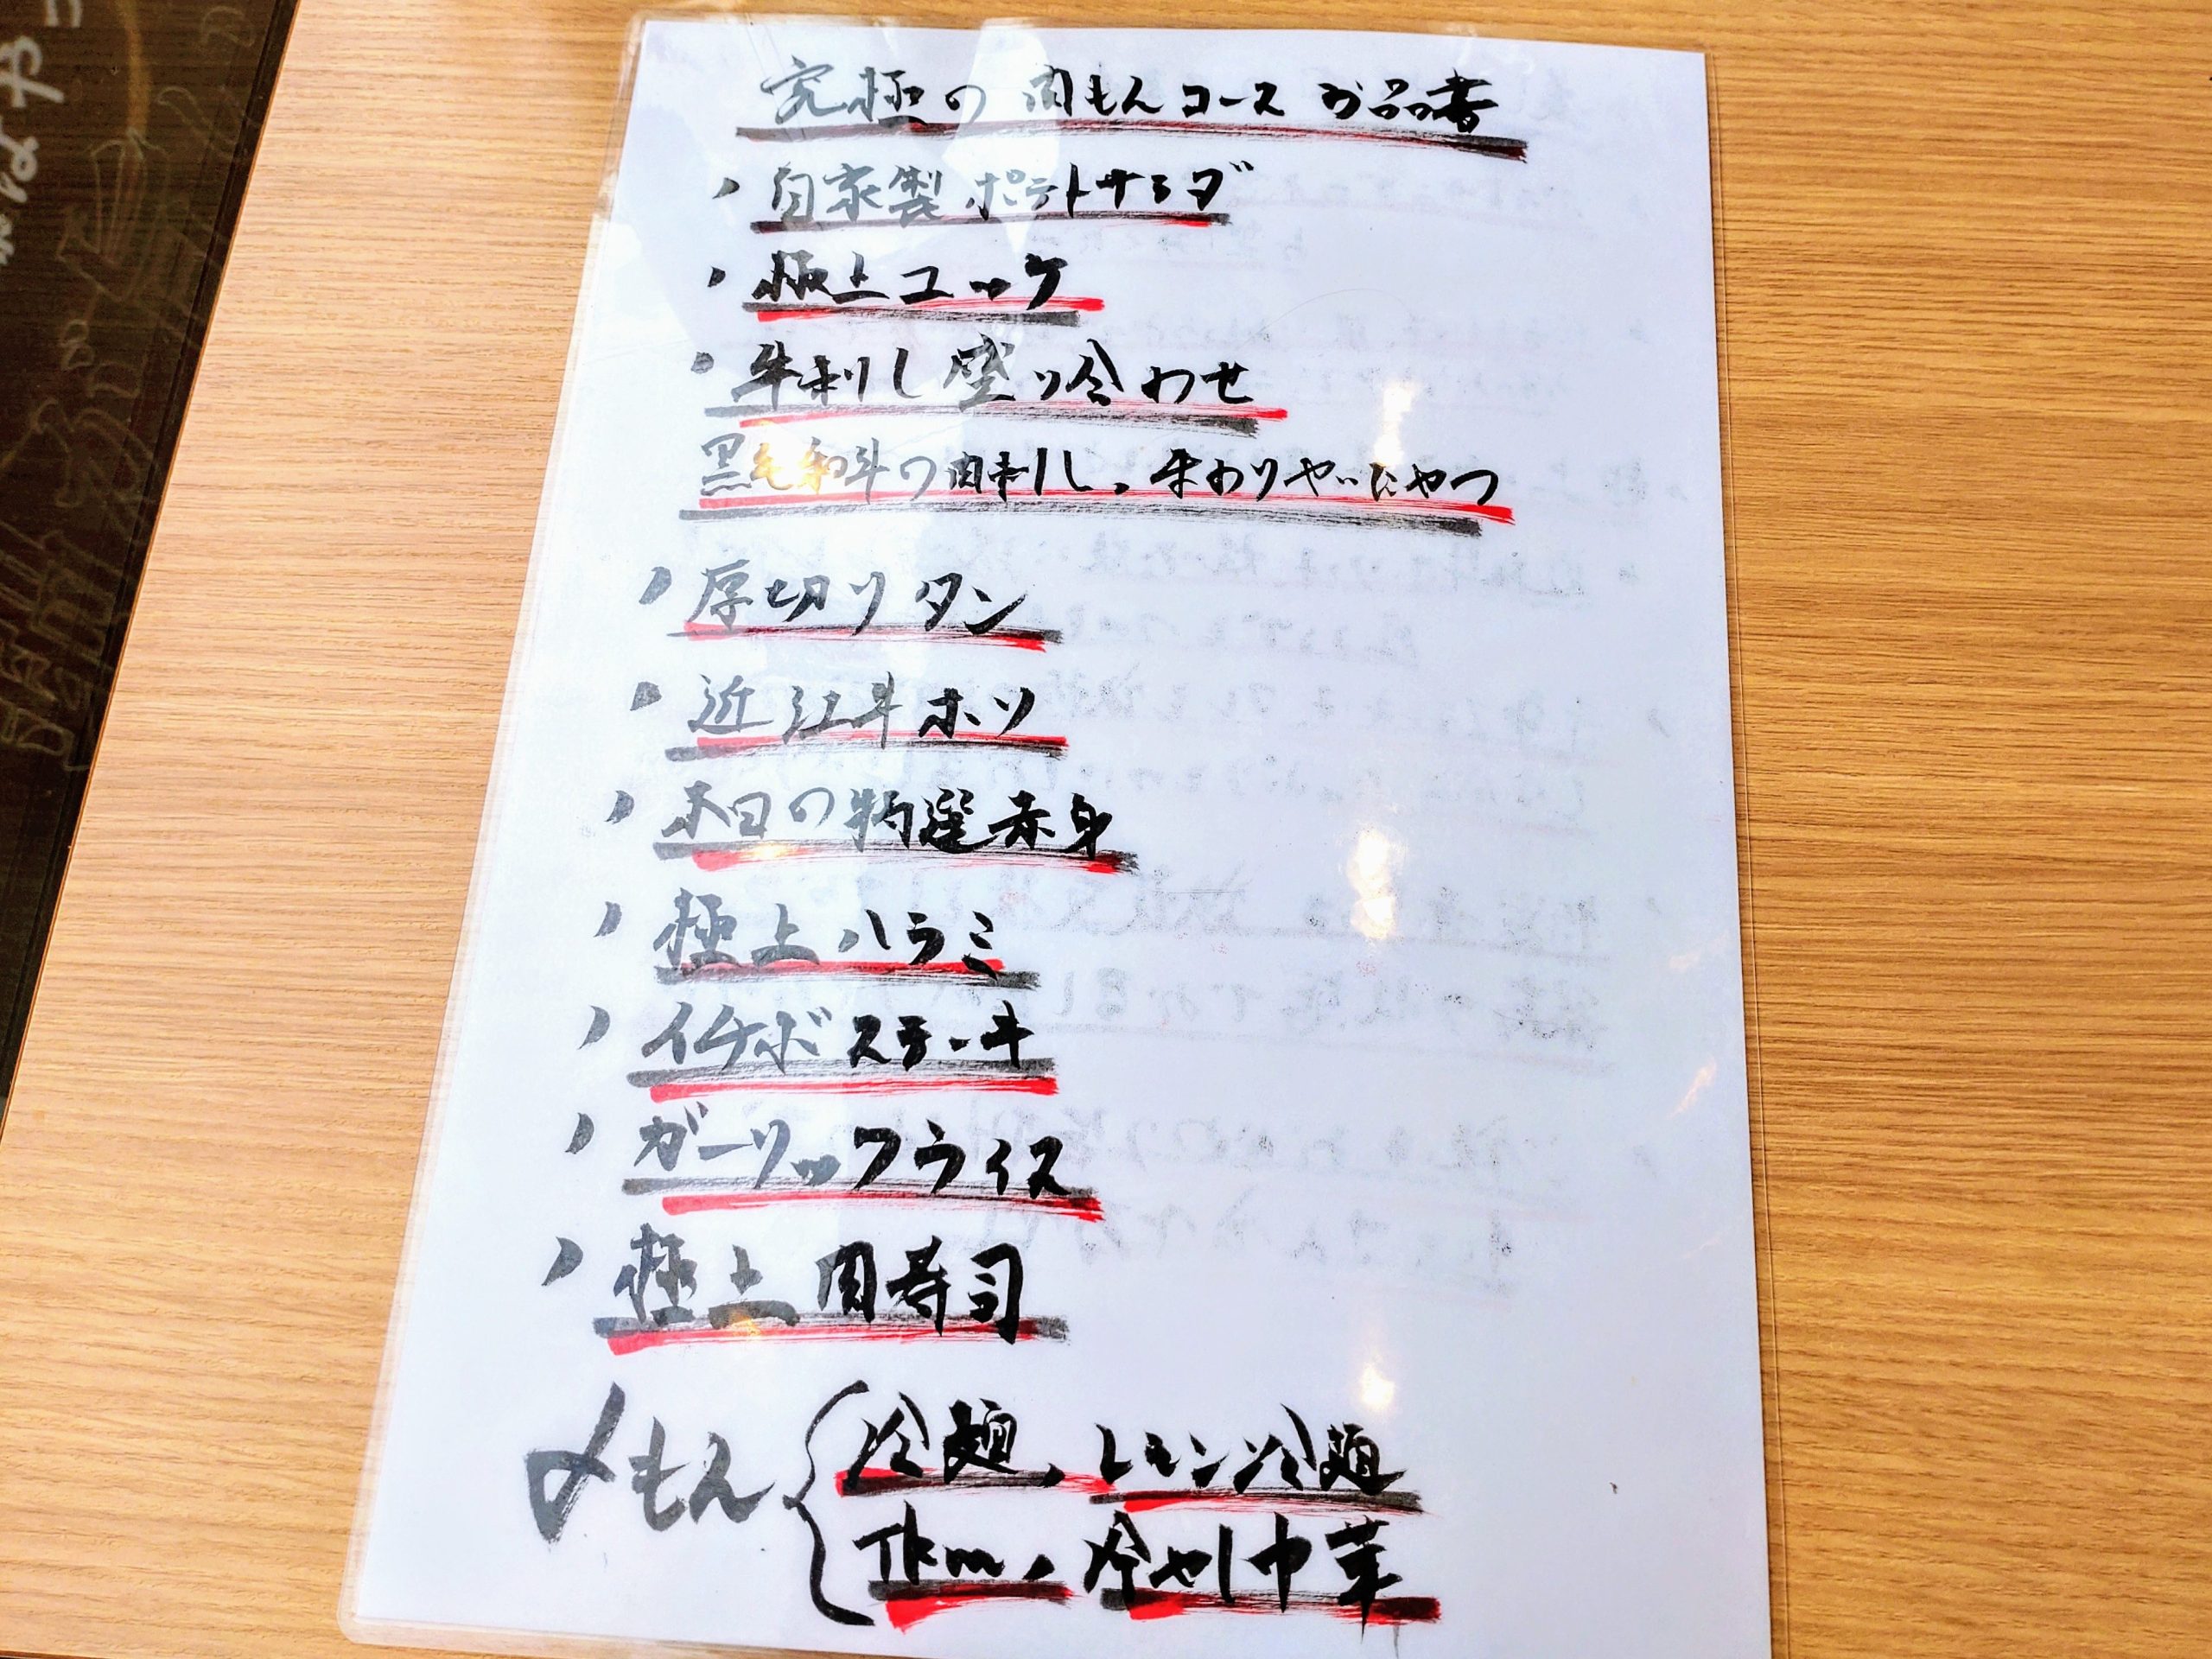 究極の肉もんコースお品書
・自家製ポテトサラダ
・極上ユッケ
・牛刺し盛り合わせ
黒毛和牛の肉刺し、
・厚切りタン
・近江牛ホソ
・本日の特選赤身
・極上ハラミ
・イチボステーキ
・ガーリックライス
・極上肉寿司
〆もん
冷麺、レモン冷麺
TKM、冷やし中華